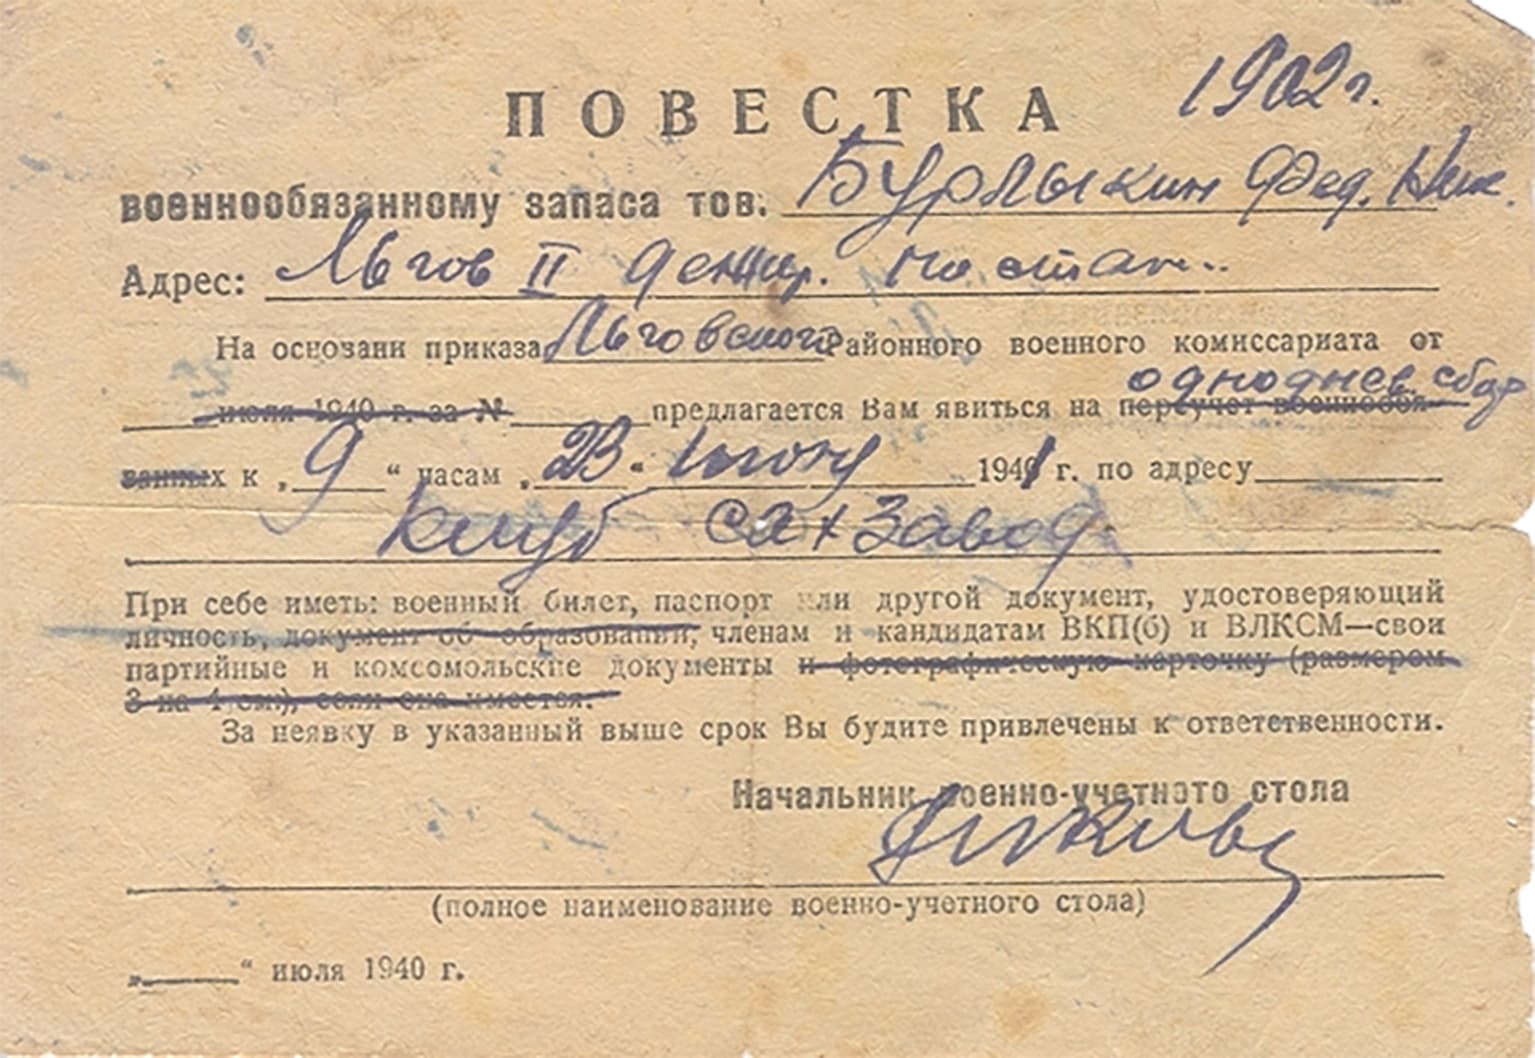 1902 г.
ПОВЕСТКА
военнообязанному запаса тов. Бурлыкин Фед. Ник.
Адрес: Льгов II дежур. по стан.
На основани приказа Льговского районного военного комиссариата от
однодневн. сбор
июля 1940 г. за № предлагается Вам явиться на переучет военнообя-
занных к „ 9 “ часам „ 23 “ июня 1941 г. по адресу
клуб сахзавод.
При себе иметь: военный билет, паспорт или другой документ, удостоверяющий
личность, документ об образовании, членам и кандидатам ВКП(б) и ВЛКСМ—свои
партийные и комсомольские документы и фотографическую карточку (размером
3 на 4 см.), если она имеется.
За неявку в указанный выше срок Вы будите привлечены к ответственности.
Начальник военно-учетного стола
(полное наименование военно-учетного стола)
„ “ июля 1940 г.